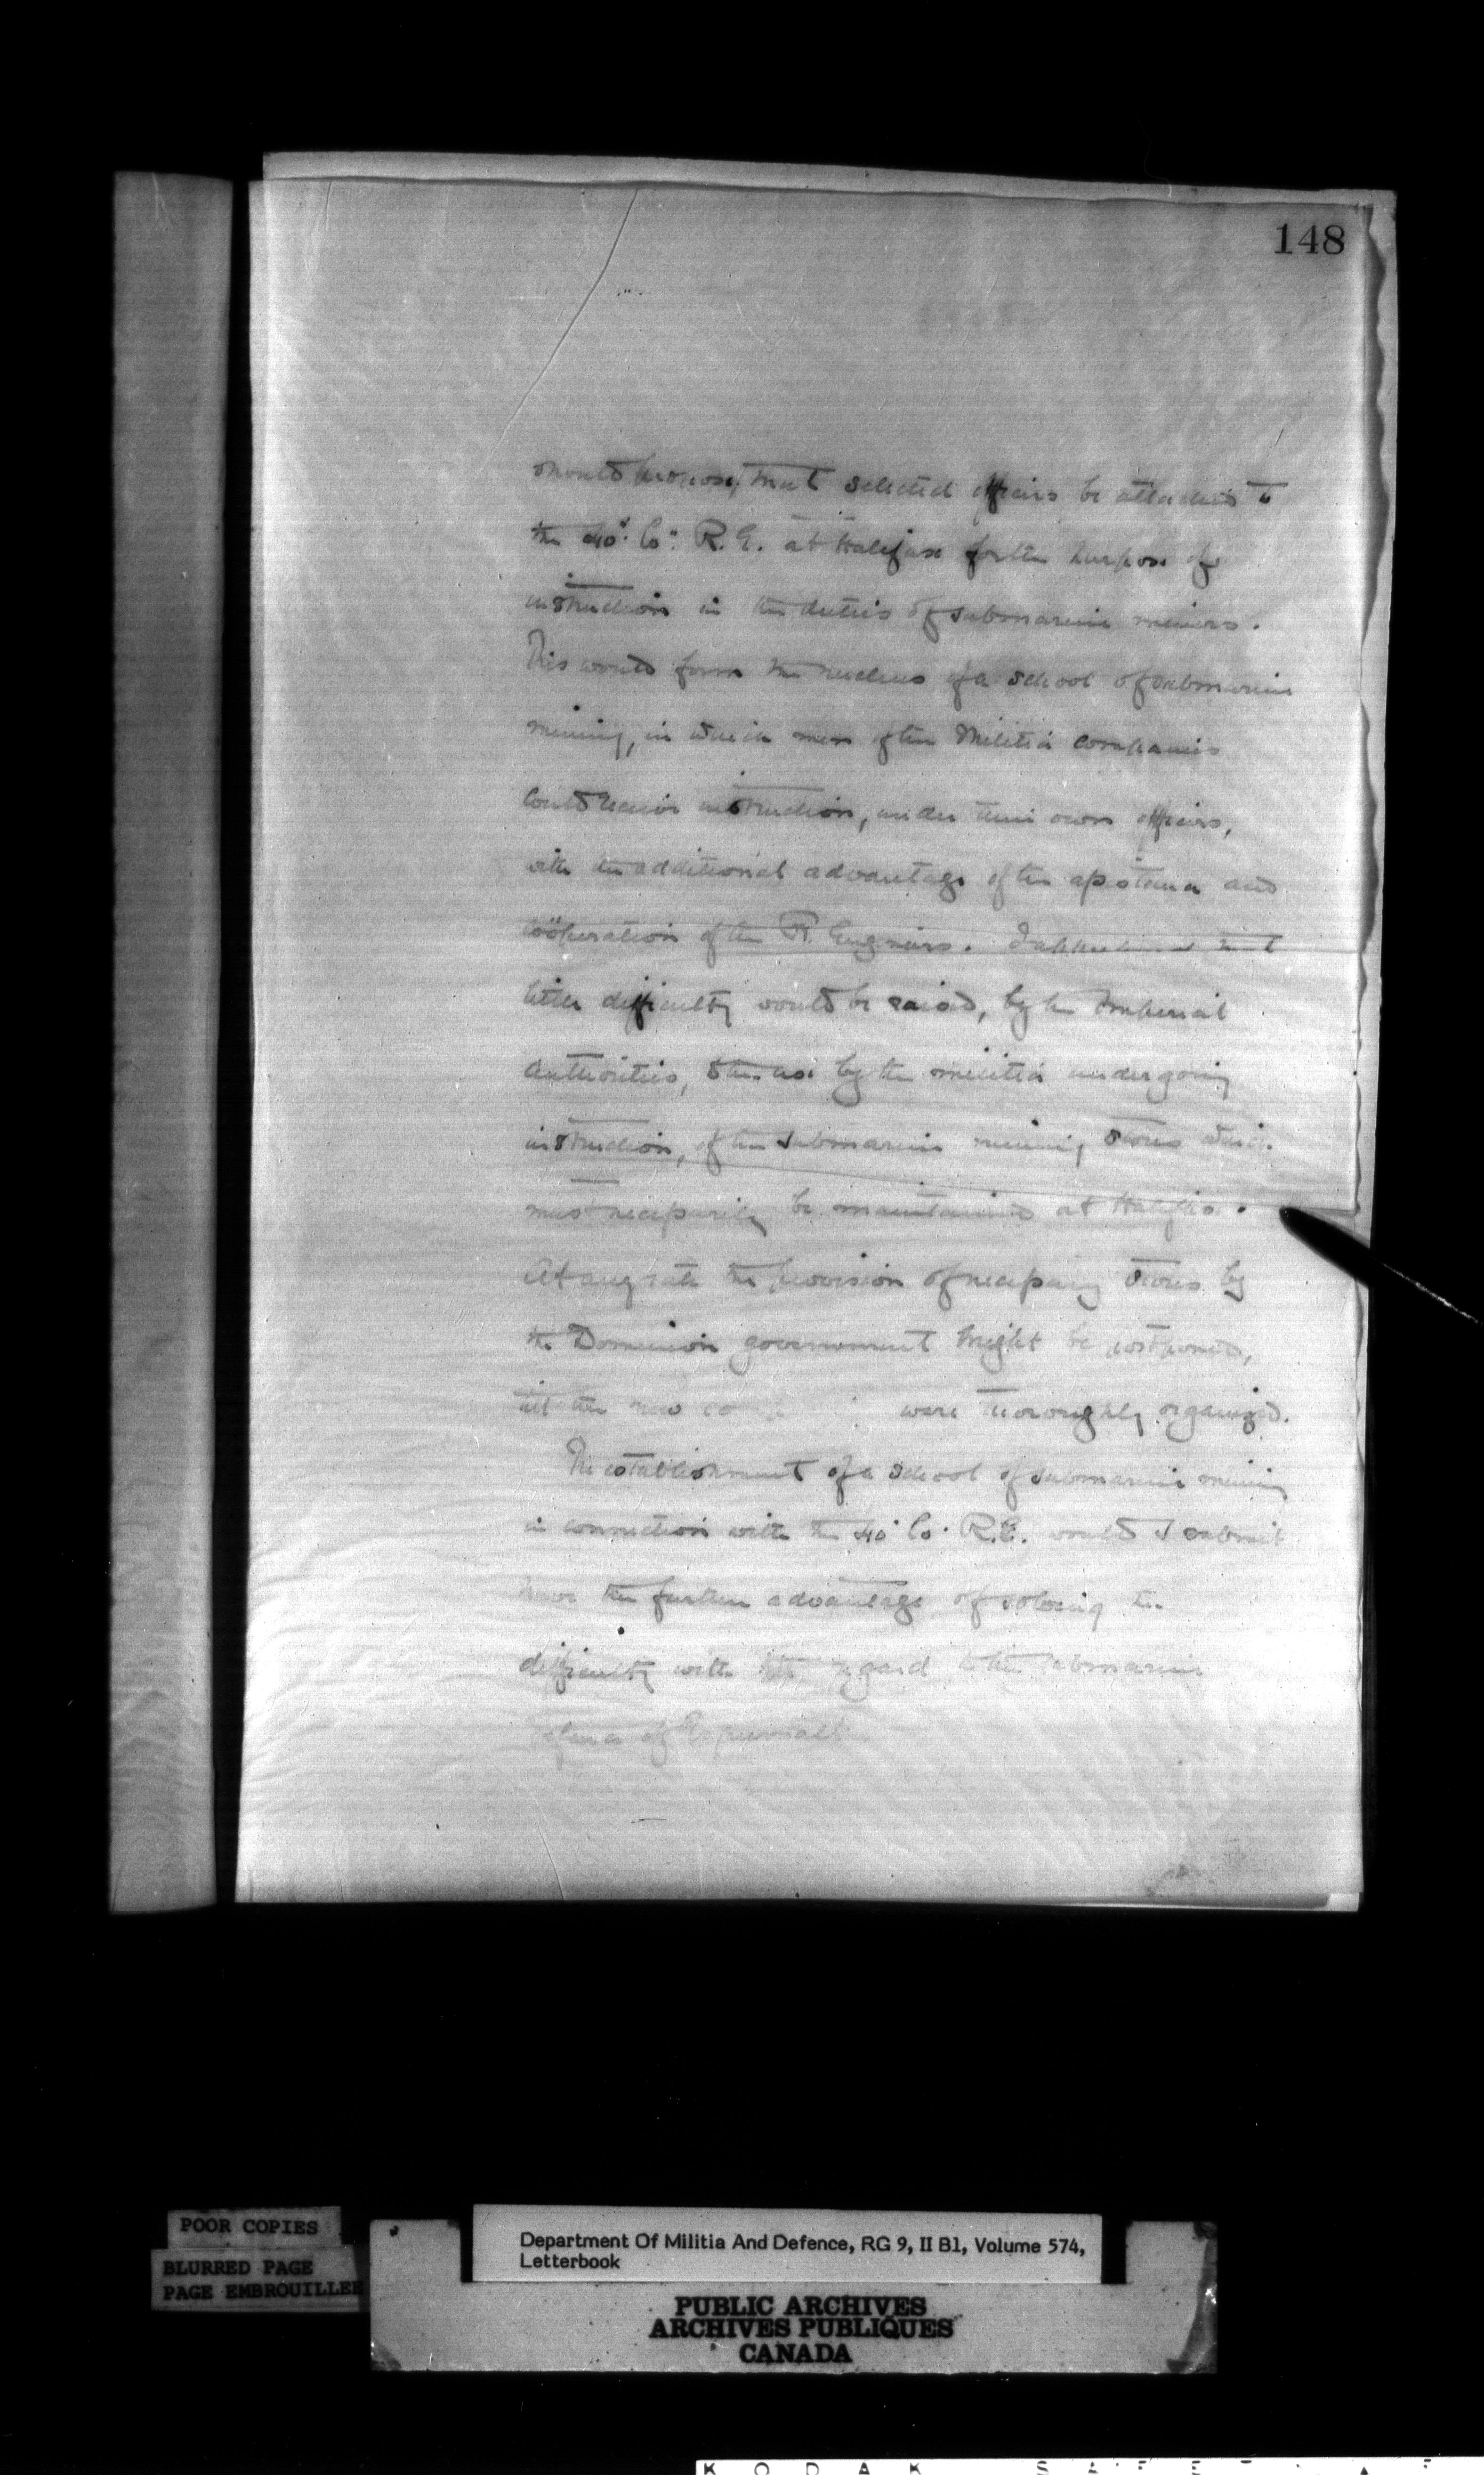 148
should propose, that selected officers be attached to
the 40th Co. R. E. at Halifax for the purpose of
instruction in the duties of submarine miners.
This would form the nucleus of a school of submarine
mining, in which men of the Militia companies
could receive instruction, under their own officers,
with the additional advantage of the assistance and
coöperation of the R. Engineers. I apprehend that
little difficulty would be raised, by the Imperial
authorities, to the use by the militia undergoing
instruction, of the submarine mining stores which
must necessarily be maintained at Halifax.
At any rate the provision of necessary stores by
the Dominion government might be postponed,
till the new were thoroughly organized.
The establishment of a school of submarine mining
in connection with the 40 Co. R.E. would I submit
have the further advantage of solving the
difficulty with regard to the submarine
defence of Esquimalt
POOR COPIES
BLURRED PAGE
PAGE EMBROUILLEE
Department Of Militia And Defence, RG 9, II B1, Volume 574,
Letterbook
PUBLIC ARCHIVES
ARCHIVES PUBLIQUES
CANADA
KODAK